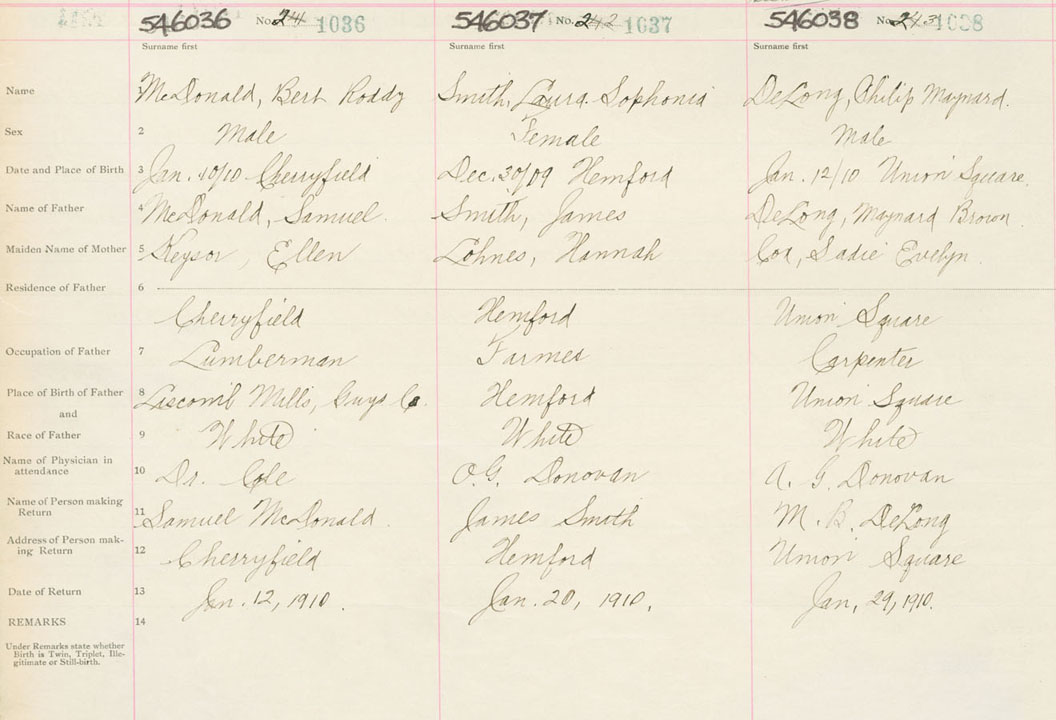 546036 No. 241 1036 546037 No. 242 1037 546038 No. 243 1038
Surname first Surname first Surname first
Name McDonald, Bert Roddy Smith, Laura Sophonia DeLong, Philip Maynard.
Sex 2 Male Female Male
Date and Place of Birth 3 Jan. 10/10 Cherryfield Dec. 30/09 Hemford Jan. 12/10 Union Square.
Name of Father 4 McDonald, Samuel. Smith, James DeLong, Maynard Brown.
Maiden Name of Mother 5 Keysor, Ellen Lohnes, Hannah Cox, Sadie Evelyn.
Residence of Father 6
Cherryfield Hemford Union Square
Occupation of Father 7 Lumberman Farmer Carpenter
Place of Birth of Father 8 Liscomb Mills, Guys Co. Hemford Union Square
and
Race of Father 9 White White White
Name of Physician in
attendance 10 Dr. Cole O. G. Donovan A. G. Donovan
Name of Person making
Return 11 Samuel McDonald. James Smith M. B. DeLong
Address of Person mak-
ing Return 12 Cherryfield Hemford Union Square
Date of Return 13 Jan. 12, 1910. Jan. 20, 1910. Jan, 29, 1910.
REMARKS 14
Under Remarks state whether
Birth is Twin, Triplet, Ille-
gitimate or Still-birth.